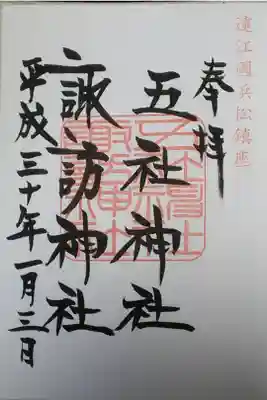 遠江國浜松鎮座
奉拝
五社神社
諏訪神社
平成三十年一月三日